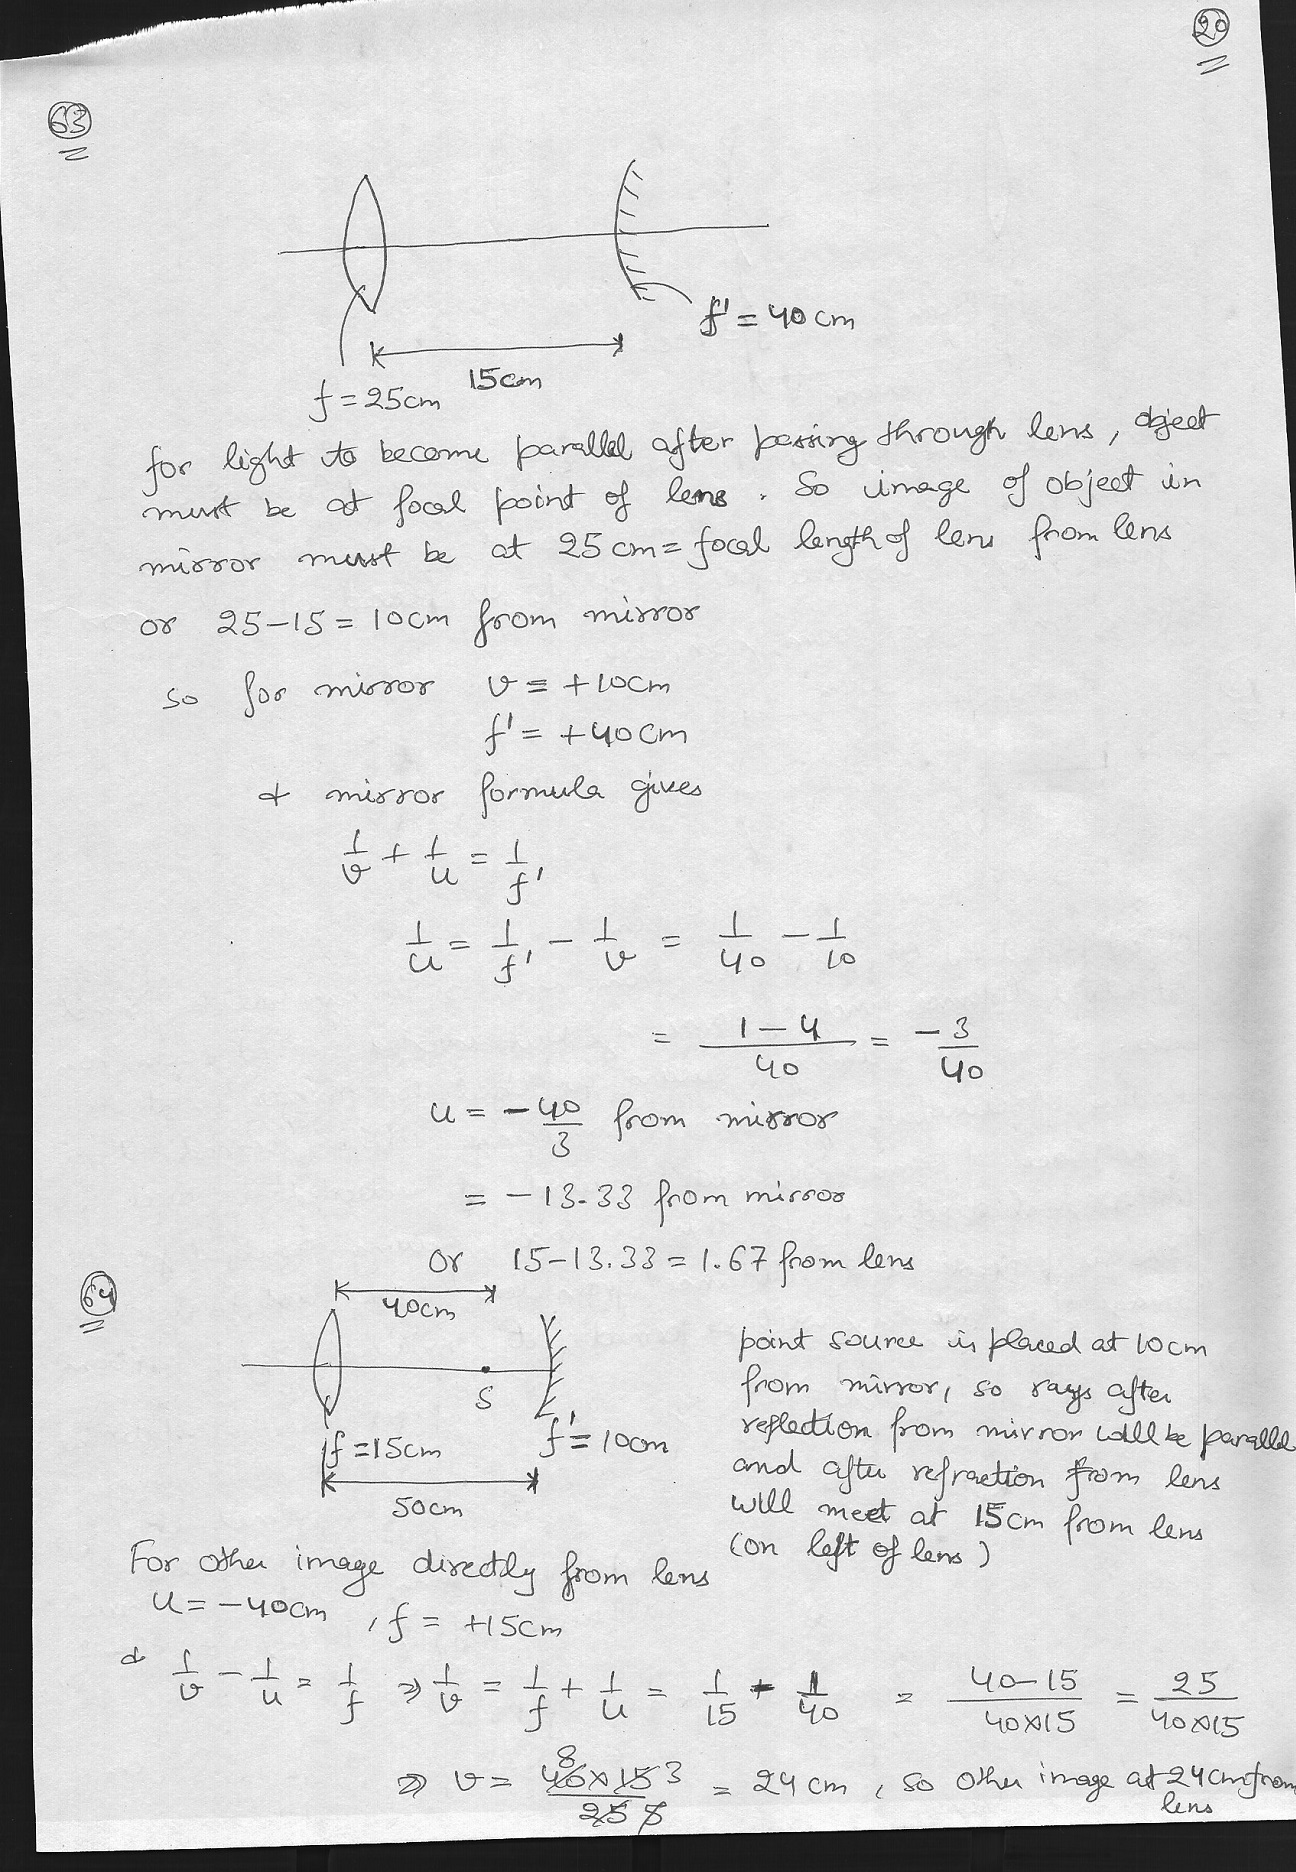 20
63
f' = 40cm
15cm
f = 25cm
for light to become parallel after passing through lens, object
must be at focal point of lens. So image of object in
mirror must be at 25cm = focal length of lens from lens
or 25-15 = 10cm from mirror
so for mirror v = +10cm
f' = +40cm
& mirror formula gives
1/v + 1/u = 1/f'
1/u = 1/f' - 1/v = 1/40 - 1/10
= (1-4)/40 = -3/40
u = -40/3 from mirror
= -13.33 from mirror
or 15-13.33 = 1.67 from lens
64
40cm
S
f = 15cm
f' = 10cm
50cm
point source is placed at 10cm
from mirror, so rays after
reflection from mirror will be parallel
and after refraction from lens
will meet at 15cm from lens
(on left of lens)
For other image directly from lens
u = -40cm, f = +15cm
& 1/v - 1/u = 1/f ⇒ 1/v = 1/f + 1/u = 1/15 - 1/40 = (40-15)/(40×15) = 25/(40×15)
⇒ v = (40×15)/25 8 3 5 = 24cm, so other image at 24cm from
lens